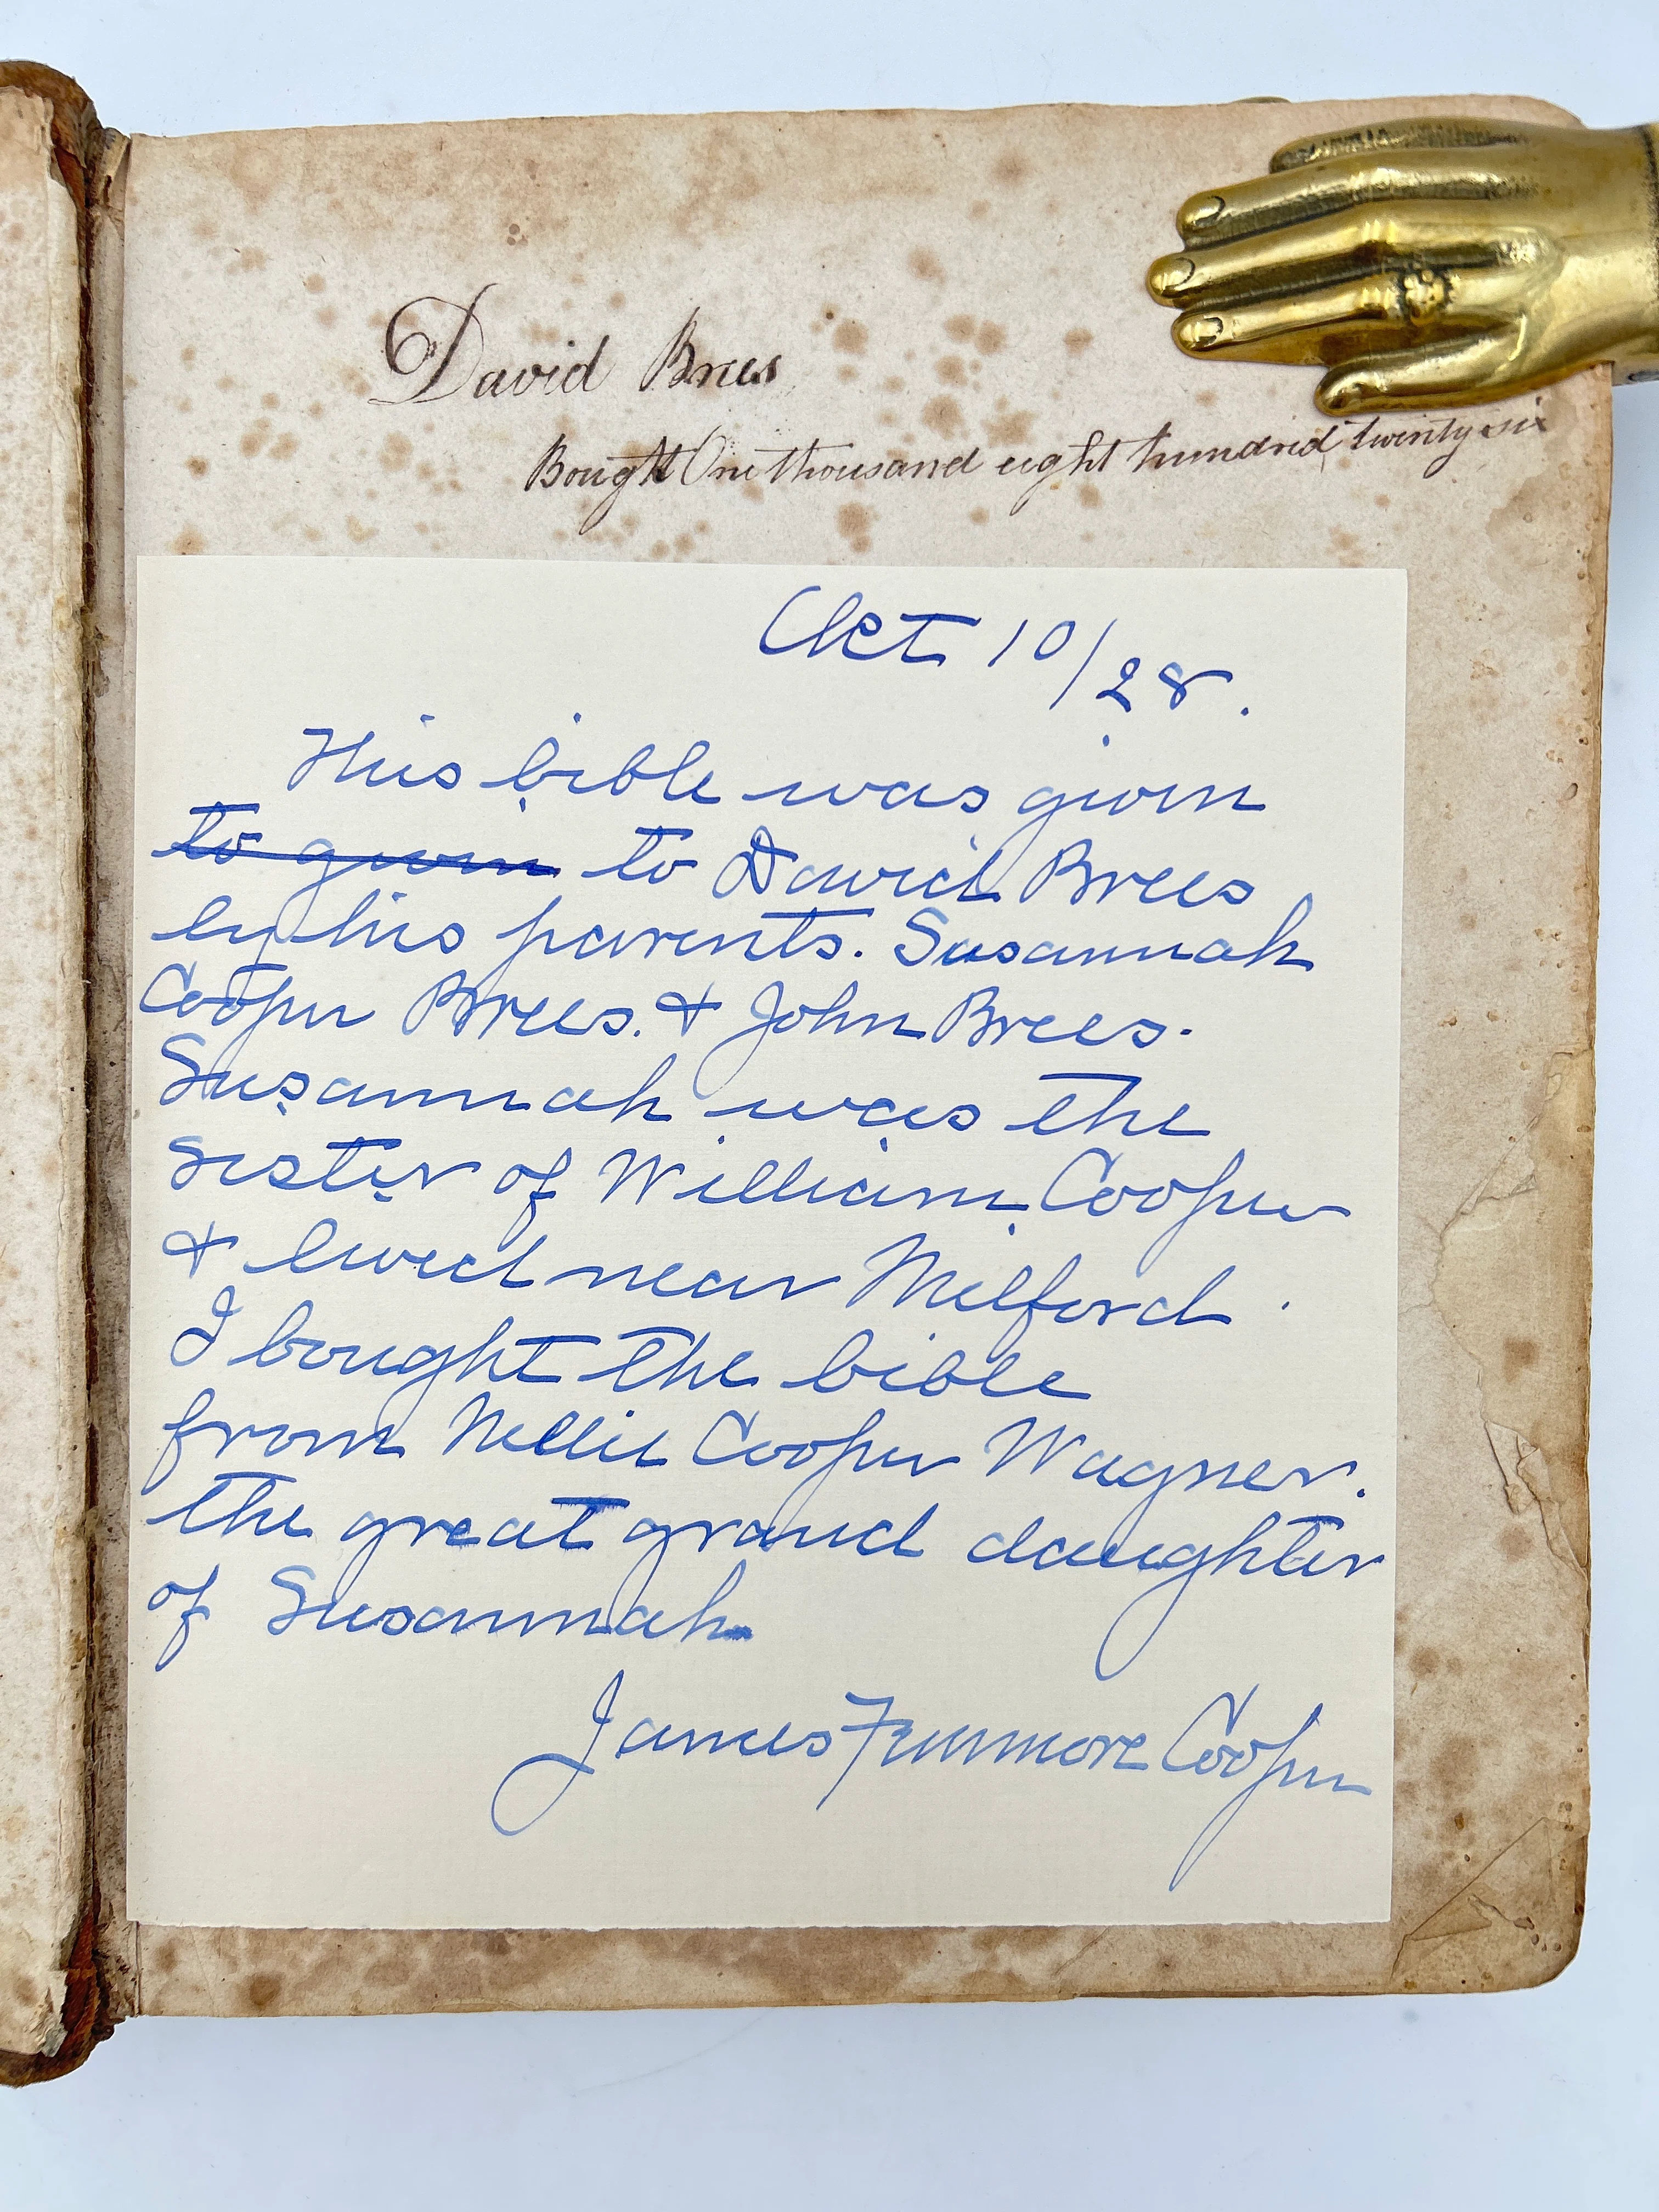 David Brees
Bought One thousand eight hundred twenty six
Oct 10/28.
This bible was given
to given to David Brees
by his parents. Susannah
Cooper Brees. & John Brees.
Susannah was the
sister of William Cooper
& lived near Milford.
I bought the bible
from Nellie Cooper Wagner.
the great grand daughter
of Susannah
James Fenimore Cooper